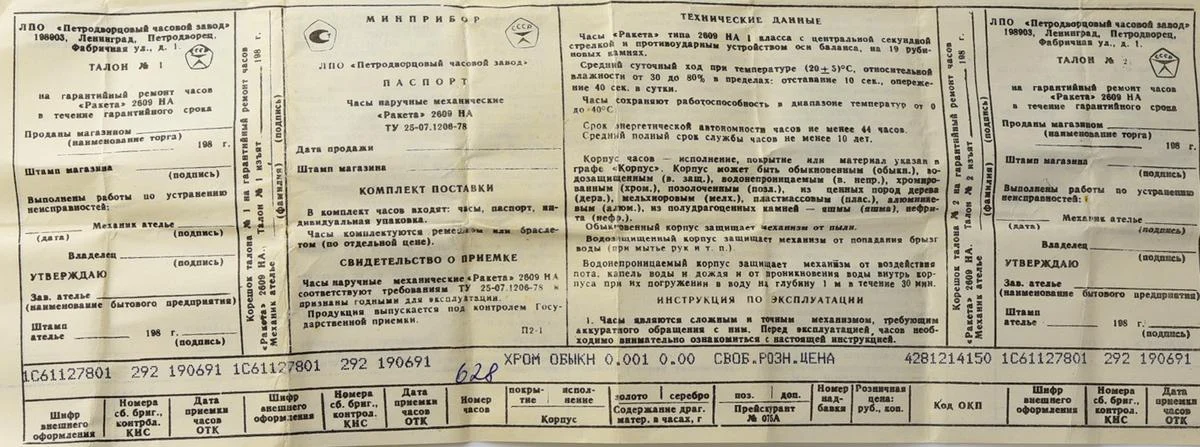 ЛПО «Петродворцовый часовой завод»
198903, Ленинград, Петродворец,
Фабричная ул., д. 1.
ТАЛОН № 1
на гарантийный ремонт часов
«Ракета» 2609 НА
в течение гарантийного срока
Проданы магазином
(наименование торга)
198 г.
Штамп магазина
(подпись)
Выполнены работы по устранению
неисправностей:
Механик ателье
(дата) (подпись)
Владелец
(подпись)
УТВЕРЖДАЮ
Зав. ателье
(наименование бытового предприятия)
Штамп
ателье 198 г.
(подпись)
Корешок талона № 1 на гарантийный ремонт часов
«Ракета» 2609 НА. Талон № 1 изъят 198 г.
Механик ателье
(фамилия) (подпись)
МИНПРИБОР
СССР
ЛПО «Петродворцовый часовой завод»
ПАСПОРТ
Часы наручные механические
«Ракета» 2609 НА
ТУ 25-07.1206-78
Дата продажи
Штамп магазина
КОМПЛЕКТ ПОСТАВКИ
В комплект часов входят: часы, паспорт, ин-
дивидуальная упаковка.
Часы комплектуются ремешком или брасле-
том (по отдельной цене).
СВИДЕТЕЛЬСТВО О ПРИЕМКЕ
Часы наручные механические «Ракета» 2609 НА
соответствуют требованиям ТУ 25-07.1206-78 и
признаны годными для эксплуатации.
Продукция выпускается под контролем Госу-
дарственной приемки.
П2-1
ТЕХНИЧЕСКИЕ ДАННЫЕ
Часы «Ракета» типа 2609 НА 1 класса с центральной секундной
стрелкой и противоударным устройством оси баланса, на 19 руби-
новых камнях.
Средний суточный ход при температуре (20±5)°С, относительной
влажности от 30 до 80% в пределах: отставание 10 сек., опереже-
ние 40 сек. в сутки.
Часы сохраняют работоспособность в диапазоне температур от 0
до 40°С.
Срок энергетической автономности часов не менее 44 часов.
Средний полный срок службы часов не менее 10 лет.
Корпус часов — исполнение, покрытие или материал указан в
графе «Корпус». Корпус может быть обыкновенным (обыкн.), во-
дозащищенным (в. защ.), водонепроницаемым (в. непр.), хромиро-
ванным (хром.), позолоченным (позл.), из ценных пород дерева
(дерв.), мельхиоровым (мелх.), пластмассовым (плас.), алюминие-
вым (алюм.), из полудрагоценных камней — яшмы (яшма), нефри-
та (нефр.).
Обыкновенный корпус защищает механизм от пыли.
Водозащищенный корпус защищает механизм от попадания брызг
воды (при мытье рук и т. п.).
Водонепроницаемый корпус защищает механизм от воздействия
пота, капель воды и дождя и от проникновения воды внутрь кор-
пуса при их погружении в воду на глубину 1 м в течение 30 мин.
ИНСТРУКЦИЯ ПО ЭКСПЛУАТАЦИИ
1. Часы являются сложным и точным механизмом, требующим
аккуратного обращения с ним. Перед эксплуатацией часов необ-
ходимо внимательно ознакомиться с настоящей инструкцией.
Корешок талона № 2 на гарантийный ремонт часов
«Ракета» 2609 НА. Талон № 2 изъят 198 г.
Механик ателье
(фамилия) (подпись)
ЛПО «Петродворцовый часовой завод»
198903, Ленинград, Петродворец,
Фабричная ул., д. 1.
ТАЛОН № 2
на гарантийный ремонт часов
«Ракета» 2609 НА
в течение гарантийного срока
Проданы магазином
(наименование торга)
198 г.
Штамп магазина
(подпись)
Выполнены работы по устранению
неисправностей:
Механик ателье
(дата) (подпись)
Владелец
(подпись)
УТВЕРЖДАЮ
Зав. ателье
(наименование бытового предприятия)
Штамп
ателье 198 г.
(подпись)
1С61127801 292 190691 1С61127801 292 190691 628 ХРОМ ОБЫКН 0.001 0.00 СВОБ.РОЗН.ЦЕНА 4281214150 1С61127801 292 190691
Шифр внешнего оформления
Номера сб. бриг., контрол. КНС
Дата приемки часов ОТК
Шифр внешнего оформления
Номера сб. бриг., контрол. КНС
Дата приемки часов ОТК
Номер часов
покрытие исполнение
Корпус
золото серебро
Содержание драг. матер. в часах, г
поз. доп.
Прейскурант № 075А
Номер надбавки
Розничная цена: руб., коп.
Код ОКП
Шифр внешнего оформления
Номера сб. бриг., контрол. КНС
Дата приемки часов ОТК